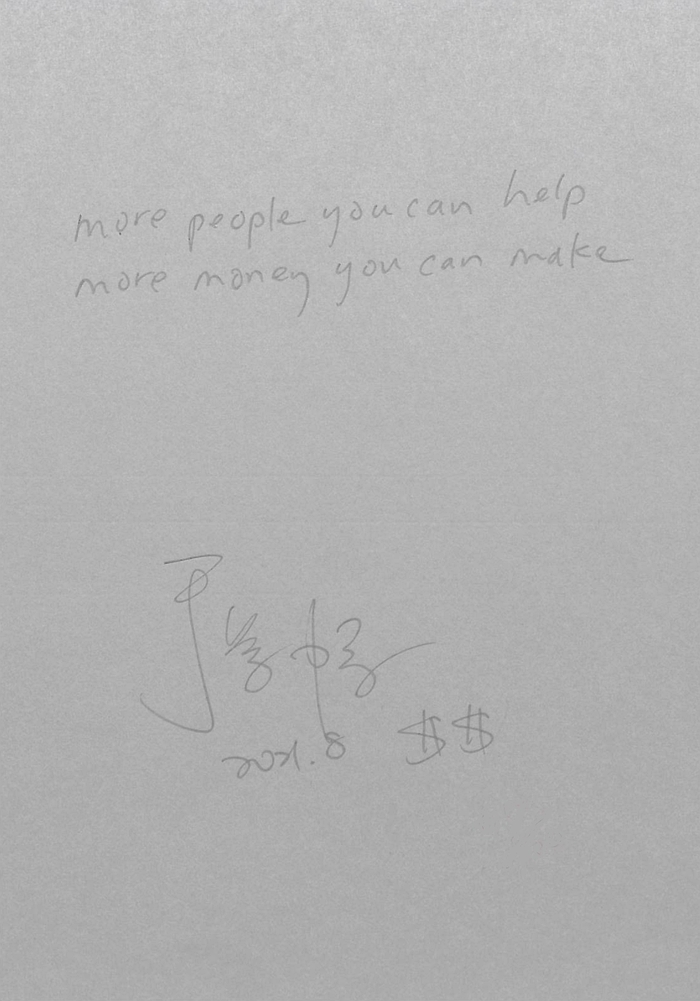 more people you can help
more money you can make
2021.8 $$